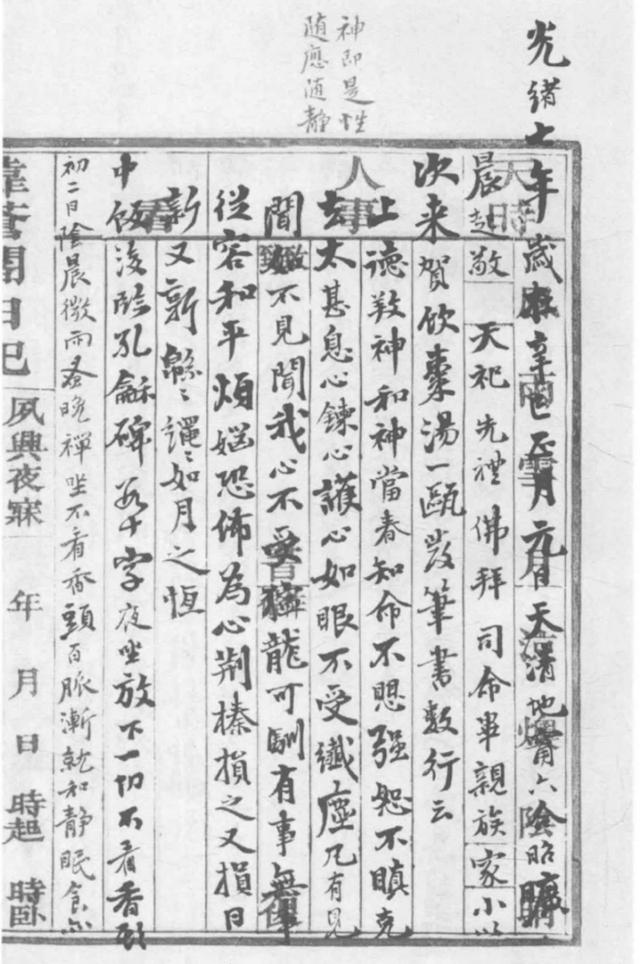 神即是性
随應随静
光緒七年歲在辛巳正月元日天清地甯六陰昭曠
晨起敬天祀先禮佛拜司命畢親族家小以
次来賀飲棗湯一甌發筆書數行云
上德敎神和神當春知命不思强恕不瞋克
去太甚息心鍊心護心如眼不受纖塵凡有見
聞如不見聞我心不受獰龍可馴有事無事
從容和平煩惱恐怖為心荆榛損之又損日
新又新緜緜繩繩如月之恆
中飯後臨孔龢碑若干字夜坐放下一切不看香頭
初二日陰晨微雨蚤晚禪坐不看香頭百脈漸就和静眠食亦
日記
夙興夜寐 年 月 日 時起 時卧
天時
人事